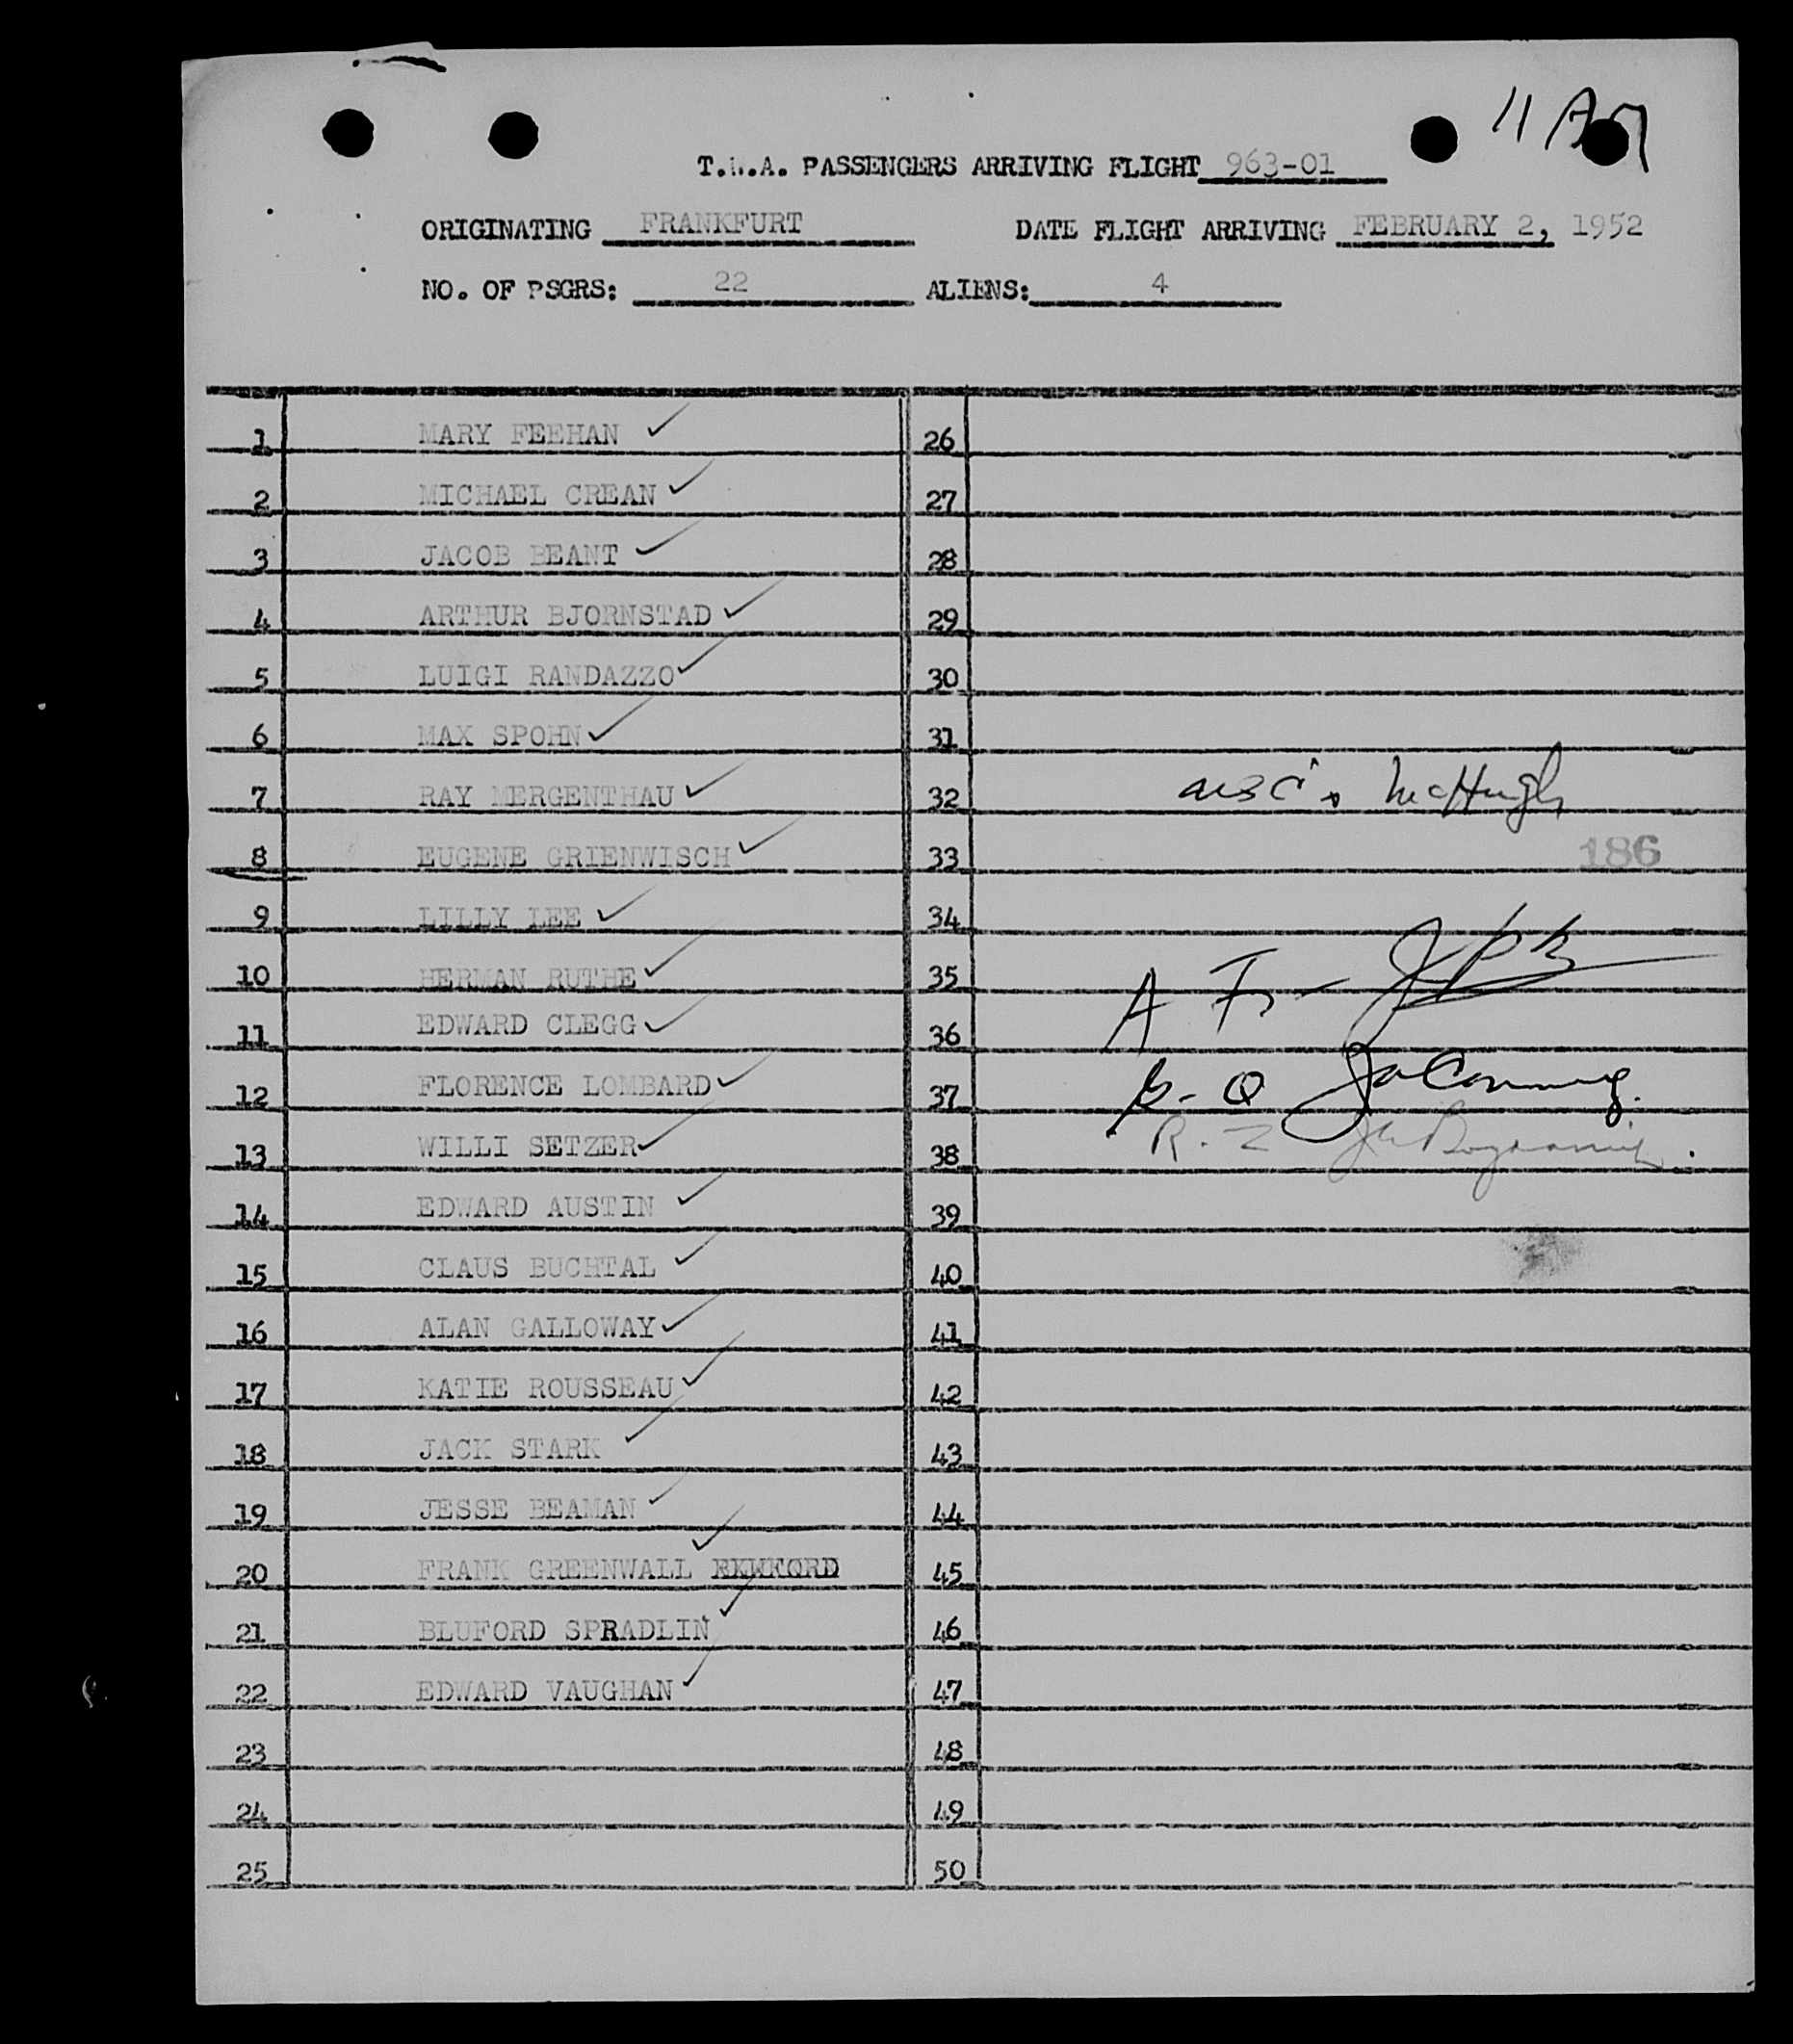 11 AM
T.W.A. PASSENGERS ARRIVING FLIGHT 963-01
ORIGINATING FRANKFURT DATE FLIGHT ARRIVING FEBRUARY 2, 1952
NO. OF PSGRS: 22 ALIENS: 4
1 MARY FEEHAN ✓ 26
2 MICHAEL CREAN ✓ 27
3 JACOB BEANT ✓ 28
4 ARTHUR BJORNSTAD ✓ 29
5 LUIGI RANDAZZO ✓ 30
6 MAX SPOHN ✓ 31
7 RAY MERGENTHAU ✓ 32 McHugh
8 EUGENE GRIENWISCH ✓ 33 186
9 LILLY LEE ✓ 34
10 HERMAN RUTHE ✓ 35 A F-
11 EDWARD CLEGG ✓ 36
12 FLORENCE LOMBARD ✓ 37 G-Q
13 WILLI SETZER ✓ 38 R-Z
14 EDWARD AUSTIN ✓ 39
15 CLAUS BUCHTAL ✓ 40
16 ALAN GALLOWAY ✓ 41
17 KATIE ROUSSEAU ✓ 42
18 JACK STARK ✓ 43
19 JESSE BEAMAN ✓ 44
20 FRANK GREENWALL ✓ 45
21 BLUFORD SPRADLIN ✓ 46
22 EDWARD VAUGHAN ✓ 47
23 48
24 49
25 50